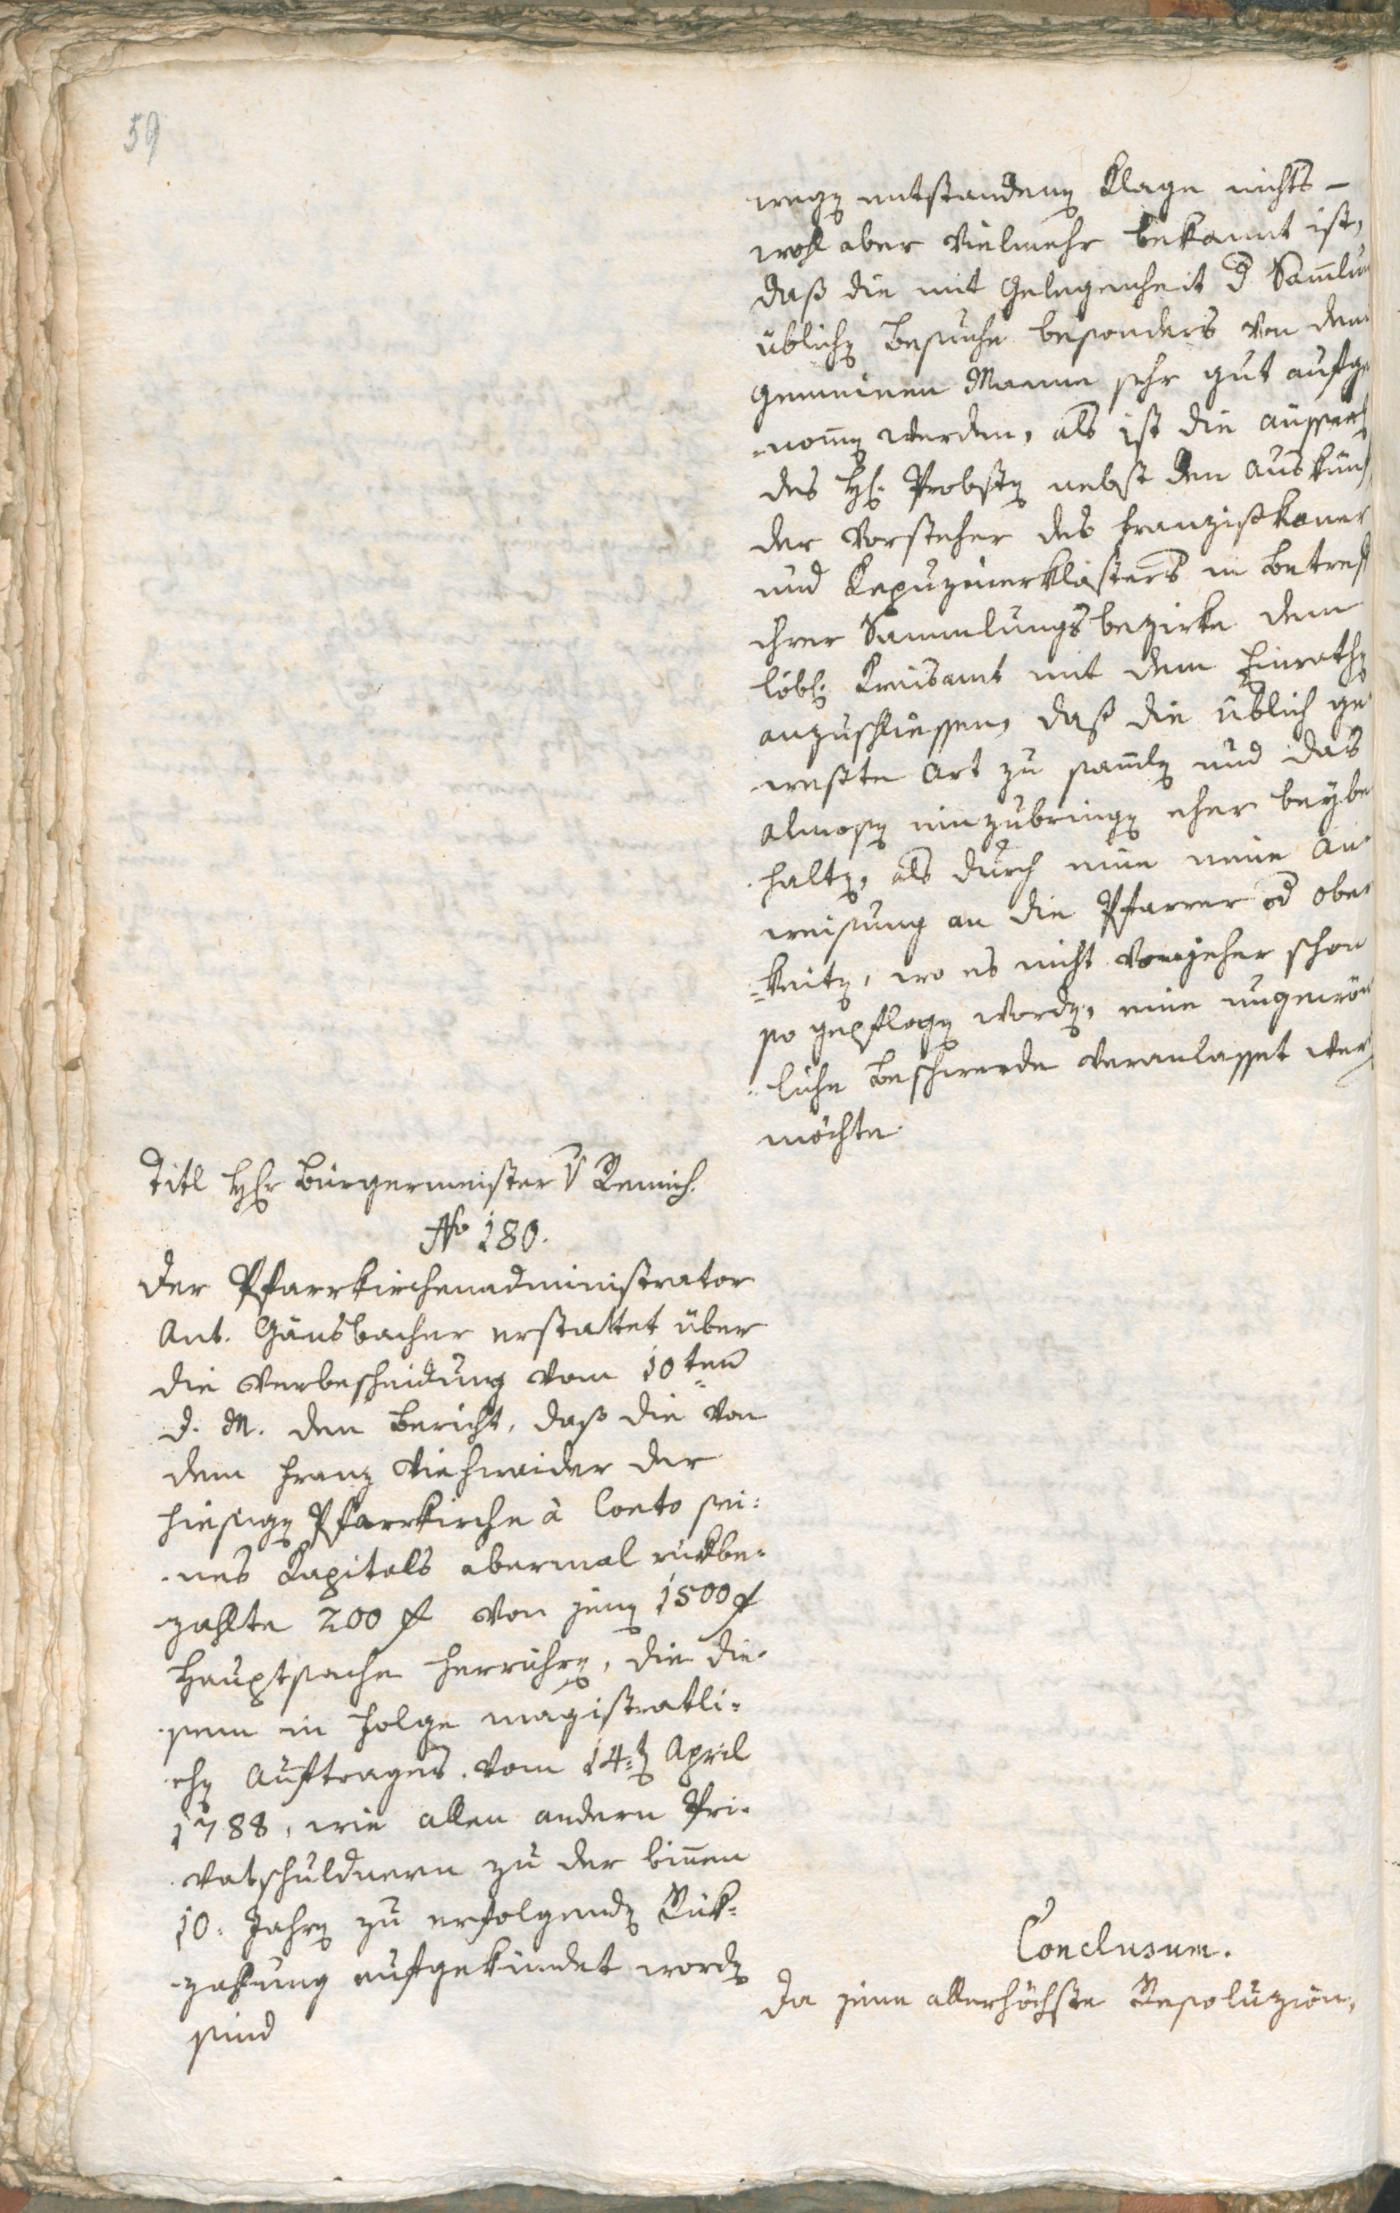 59
wegen entstandenen Klage nichts –
wohl aber vielmehr bekannt ist,
daß die mit Gelegenheit d Samlun
üblichen Besuche besonders von dem
gemeinen Manne sehr gut aufge
nomen werden, als ist die
des H: Probsten nebst den Auskünf
der Vorsteher des Franziskaner
und Kapuzinerklosters in Betref
ihrer Sammlungsbezirke dem
löbl: Kreisamt mit dem Einrathen
anzuschliessen, daß die üblich ge
weste Art zu samlen und das
Almosen einzubringen eher beybe
halten, als durch eine neue An
weisung an die Pfarrer od Obe
keiten, wo es nicht vonjeher schon
so gepflogen worden, eine ungewön
liche Beschwerde veranlasset werden
möchte.
Titl Herr Bürgermeister v Remich.
No 180.
Der Pfarrkirchenadministrator
Ant. Gänsbacher erstattet über
die Verbescheidung vom 10ten
d. M. den Bericht, daß die von
dem Franz Viehweider der
hiesigen Pfarrkirche à Conto sei=
nes Kapitals abermal rükbe=
zahlte 200 f von jenen 1500 f
Hauptsache herrühren, die die=
sem in Folge magistratli=
chen Auftrages vom 14:ten April
1788, wie allen andern Pri=
vatschuldnern zu der binnen
10. Jahren zu erfolgenden Rük=
zahlung aufgekündet worden
sind
Conclusum.
Da jene allerhöchste Resoluzion,